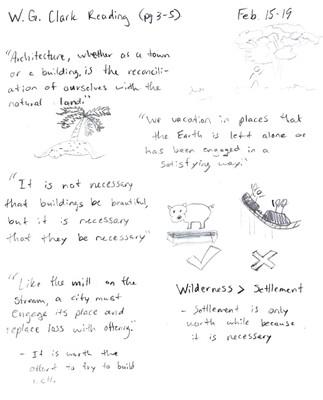 W. G. Clark Reading (pg 3-5)
Feb. 15-19
"Architecture, whether as a town
or a building, is the reconcili-
ation of ourselves with the
natural land."
"We vacation in places that
the Earth is left alone or
has been engaged in a
satisfying way."
"It is not necessary
that buildings be beautiful,
but it is necessary
that they be necessary"
"Like the mill on the
stream, a city must
engage its place and
replace loss with offering."
- It is worth the
effort to try to build
well
Wilderness > Settlement
- Settlement is only
worth while because
it is necessary